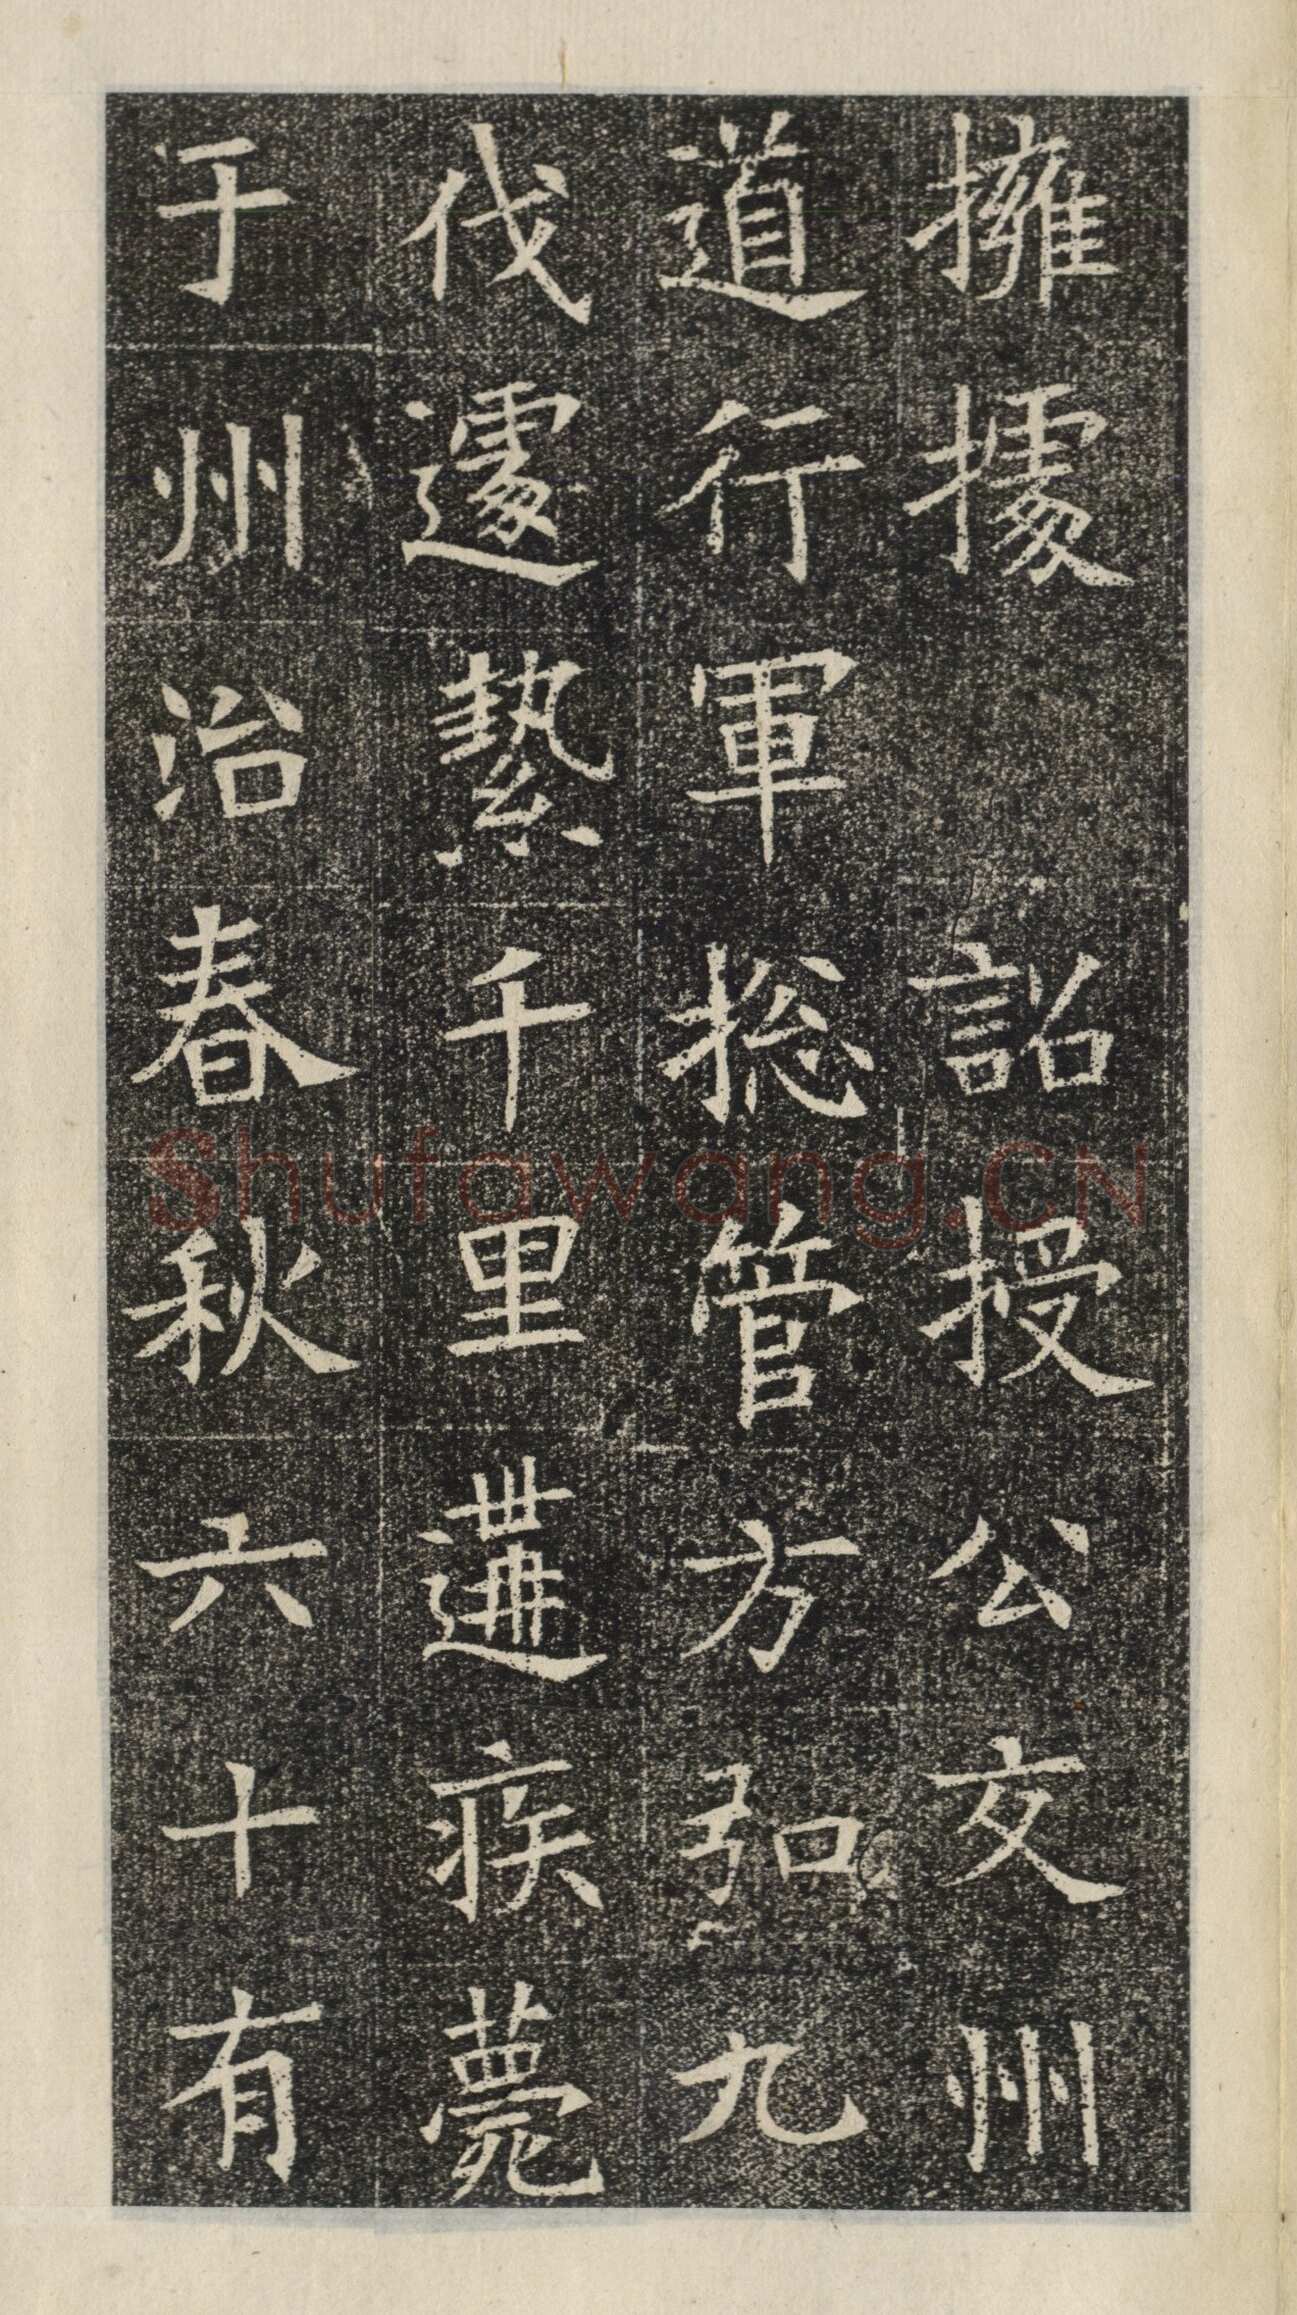 擁據詔授公交州
道行軍揔管方弘九
伐遽縶千里遘疾薨
于州治春秋六十有
Shufawang.CN